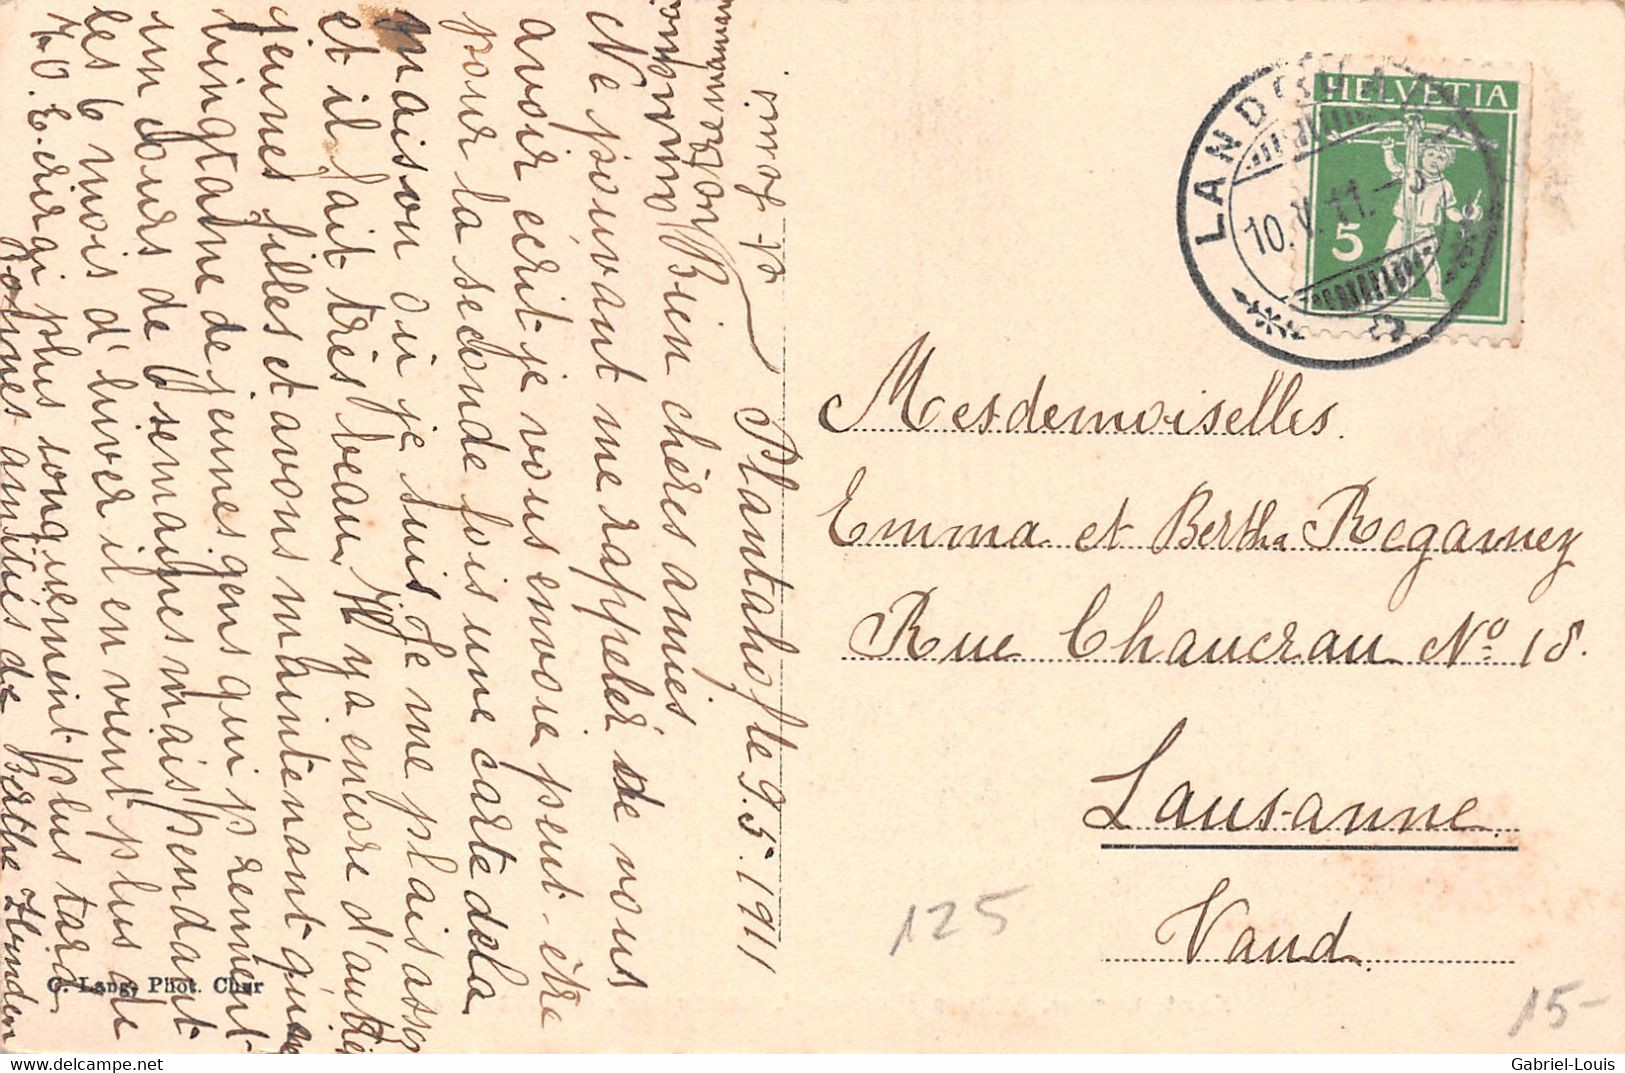 Plantahof le 9.5.1911
Bien chères amies
Ne pouvant me rappeler si de vous
avoir écrit je vous envoie peut-être
pour la seconde fois une carte de la
maison où je suis. Je me plais assez
et il fait très beau. Il y a encore d'autres
jeunes filles et avons maintenant qu'une
vingtaine de jeunes gens qui prennent
un cours de 6 semaines mais pendant
les 6 mois d'hiver il en vient plus de
70. Ecrirai plus longuement plus tard
Bonnes amitiés de Berthe
HELVETIA
5
LANDQUART
10.V.11.
Mesdemoiselles.
Emma et Bertha Regamey
Rue Chaucrau No 18.
Lausanne.
Vaud.
125
15-
C. Lang, Phot. Chur
delcampe.net
Gabriel-Louis